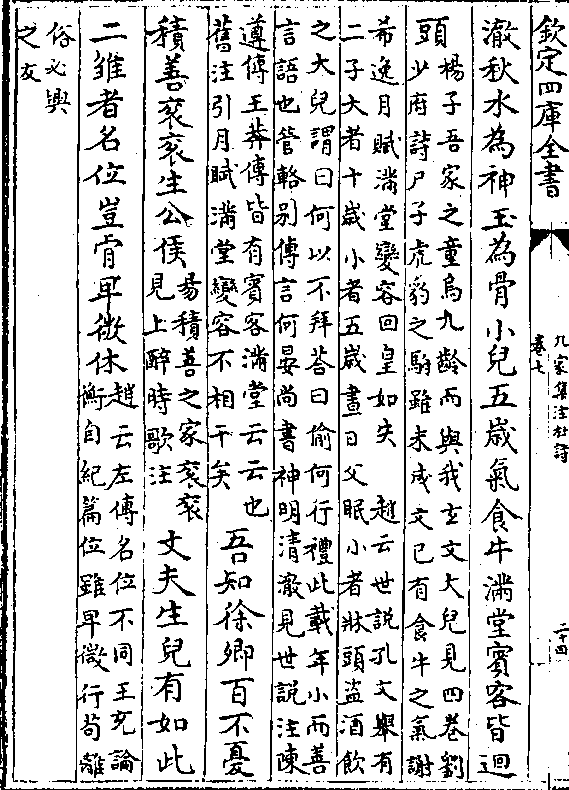 欽定四庫全書
九家集注杜詩
卷七
二十四
澈秋水為神玉為骨小兒五歲氣食牛滿堂賓客皆迴
頭
楊子吾家之童烏九齡而與我玄文大兒見四卷劉
少府詩尸子虎豹之駒雖未成文已有食牛之氣謝
希逸月賦滿堂變容回皇如失　趙云世說孔文舉有
二子大者十歲小者五歲晝日父眠小者牀頭盜酒飲
之大兒謂曰何以不拜荅曰偷何行禮此載年小而善
言語也管輅别傳言何晏尚書神明清澈見世說注陳
遵傳王莽傳皆有賓客滿堂云云也
舊注引月賦滿堂變容不相干矣
吾知徐卿百不憂
積善衮衮生公侯
易積善之家衮衮
見上醉時歌注
丈夫生兒有如此
二雛者名位豈肯卑微休
趙云左傳名位不同王充論
衡自紀篇位雖卑微行苟離
俗必與
之友